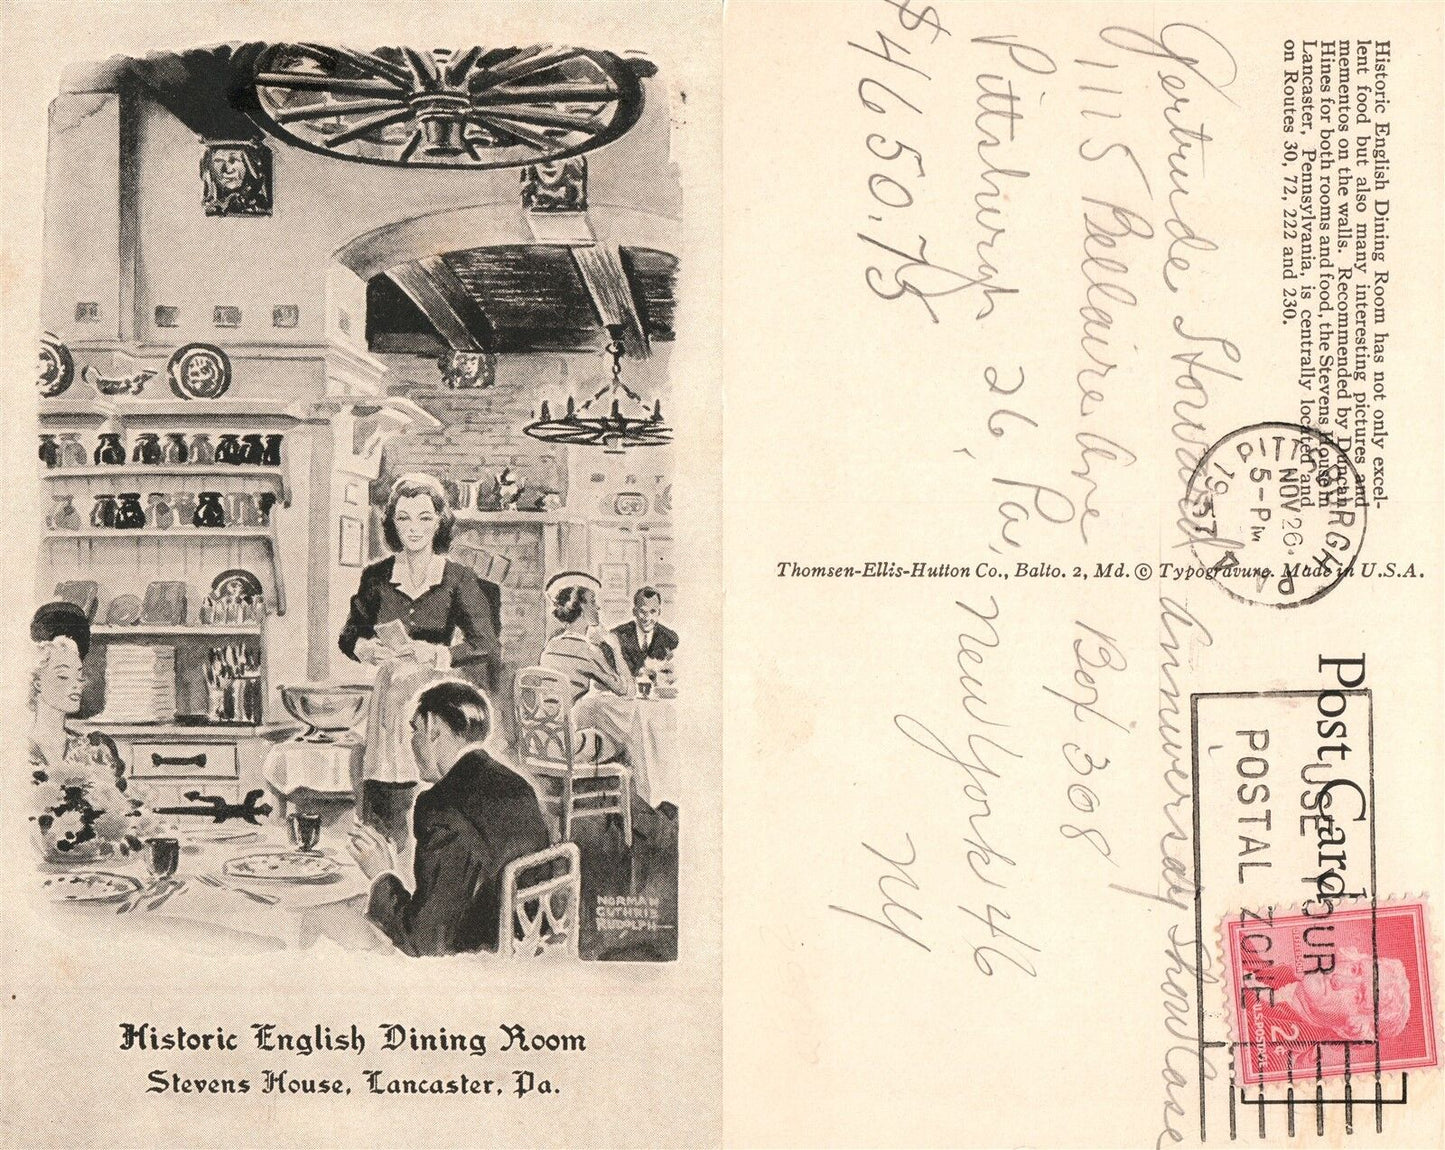 Historic English Dining Room
Stevens House, Lancaster, Pa.
NORMAN
GUTHRIE
RUDOLPH
Historic English Dining Room has not only excel-
lent food but also many interesting pictures and
mementos on the walls. Recommended by Duncan
Hines for both rooms and food, the Stevens House in
Lancaster, Pennsylvania, is centrally located and
on Routes 30, 72, 222 and 230.
PITTSBURGH
NOV 26
5-PM
1957
PA
Thomsen-Ellis-Hutton Co., Balto. 2, Md. © Typogravure. Made in U.S.A.
Post Card
USE YOUR
POSTAL ZONE
2¢
U.S. POSTAGE
JEFFERSON
Gertrude
1115 Bellaire Ave
Pittsburgh 26, Pa,
$46,650.75
Anniversary Showcase
Box 308
New York 46
NY